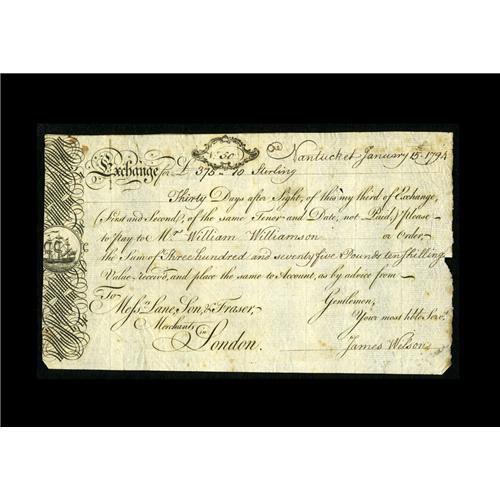 No. 50
Nantucket January 15th 1794
Exchange for £ 375 - 10 Sterling
Thirty Days after Sight, of this my third of Exchange,
(First and Second, of the same Tenor and Date, not Paid,) Please
to pay to Mr. William Williamson or Order,
the Sum of Three hundred and seventy five Pounds ten Shillings
Value Receiv'd, and place the same to Account, as by advice from
To Gentlemen,
Messrs. Lane, Son, & Fraser, Your most hble Serv.t
Merchants in
London. James Wilson